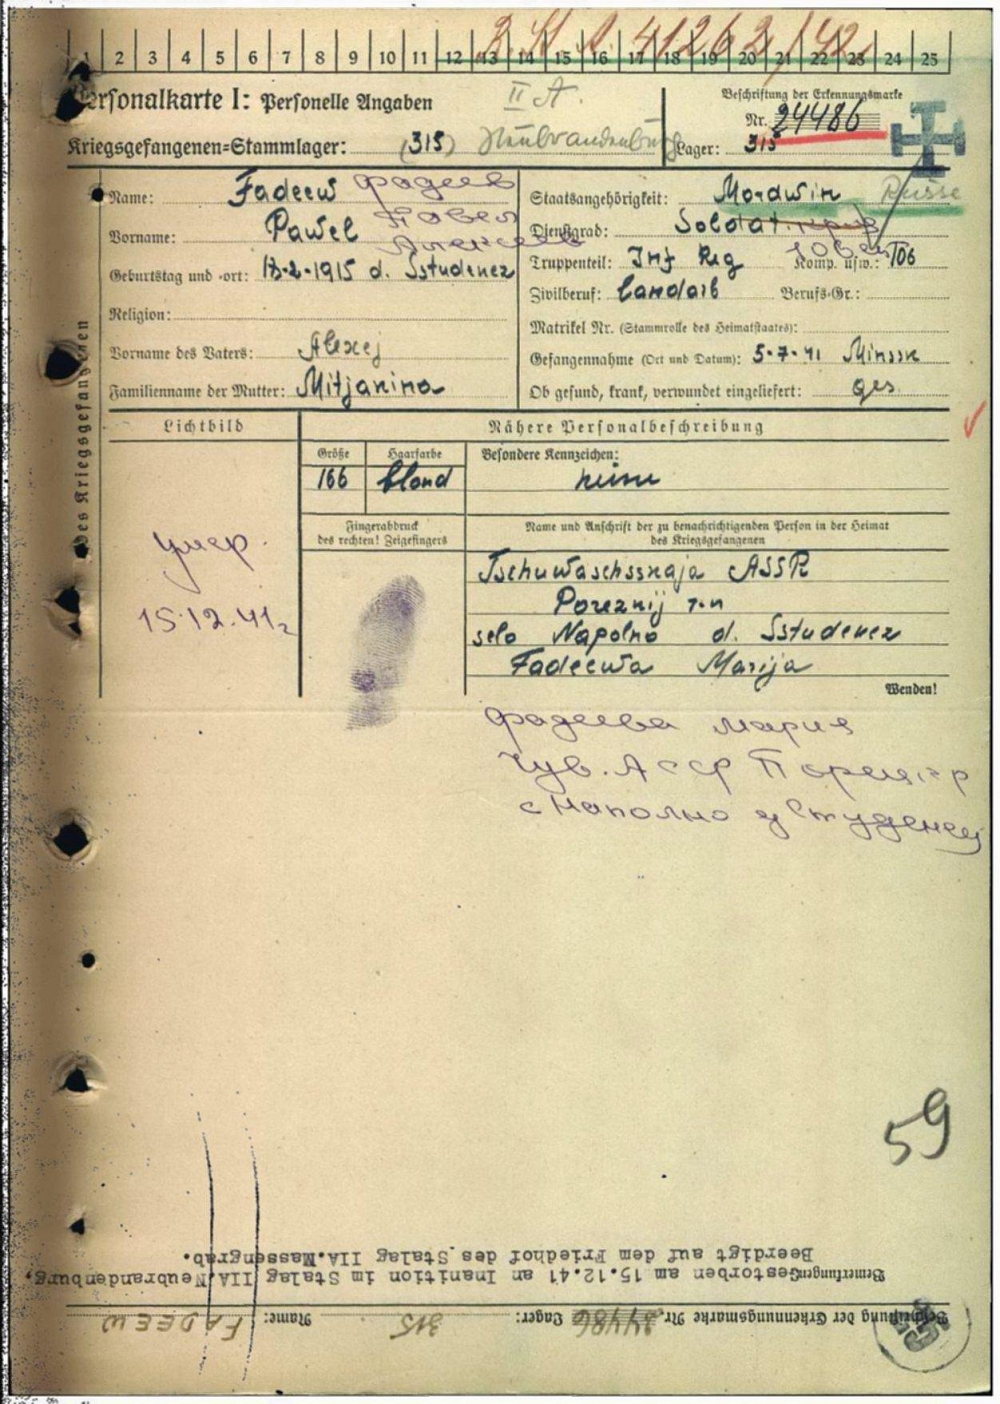 З.К.К. 41262/42.
1 2 3 4 5 6 7 8 9 10 11 12 13 14 15 16 17 18 19 20 21 22 23 24 25
Personalkarte I: Personelle Angaben
II A.
Beschriftung der Erkennungsmarke
Nr. 24486
Kriegsgefangenen=Stammlager: (315) Neubrandenburg
Lager: 315
Des Kriegsgefangenen
Name: Fadeew Фадеев
Vorname: Pawel Павел
Алексеев
Geburtstag und -ort: 18-2-1915 d. Sstudenez
Religion:
Vorname des Vaters: Alexej
Familienname der Mutter: Mitjanina
Staatsangehörigkeit: Mordwin Russe
Dienstgrad: Soldat
Truppenteil: Inf Reg Komp. usw.: 706
Zivilberuf: Landarb Berufs-Gr.:
Matrikel Nr. (Stammrolle des Heimatstaates):
Gefangennahme (Ort und Datum): 5-7-41 Minssk
Ob gesund, krank, verwundet eingeliefert: ges.
Lichtbild
Nähere Personalbeschreibung
Größe Haarfarbe Besondere Kennzeichen:
166 blond keine
Fingerabdruck
des rechten! Zeigefingers
Name und Anschrift der zu benachrichtigenden Person in der Heimat
des Kriegsgefangenen
умер.
15.12.41г
Tschuwaschsskaja ASSR
Porezkij r-n
selo Napolno d. Sstudenez
Fadeewa Marija
Wenden!
Фадеева Мария
Чув. АССР Порецк р
с Наполно д Студенец
59
Beerdigt auf dem Friedhof des Stalag IIA.Massengrab.
Bemerkungen: Gestorben am 15.12.41 an Inanition im Stalag IIA Neubrandenburg.
Beschriftung der Erkennungsmarke Nr. 24486 Lager: 315 Name: FADEEW